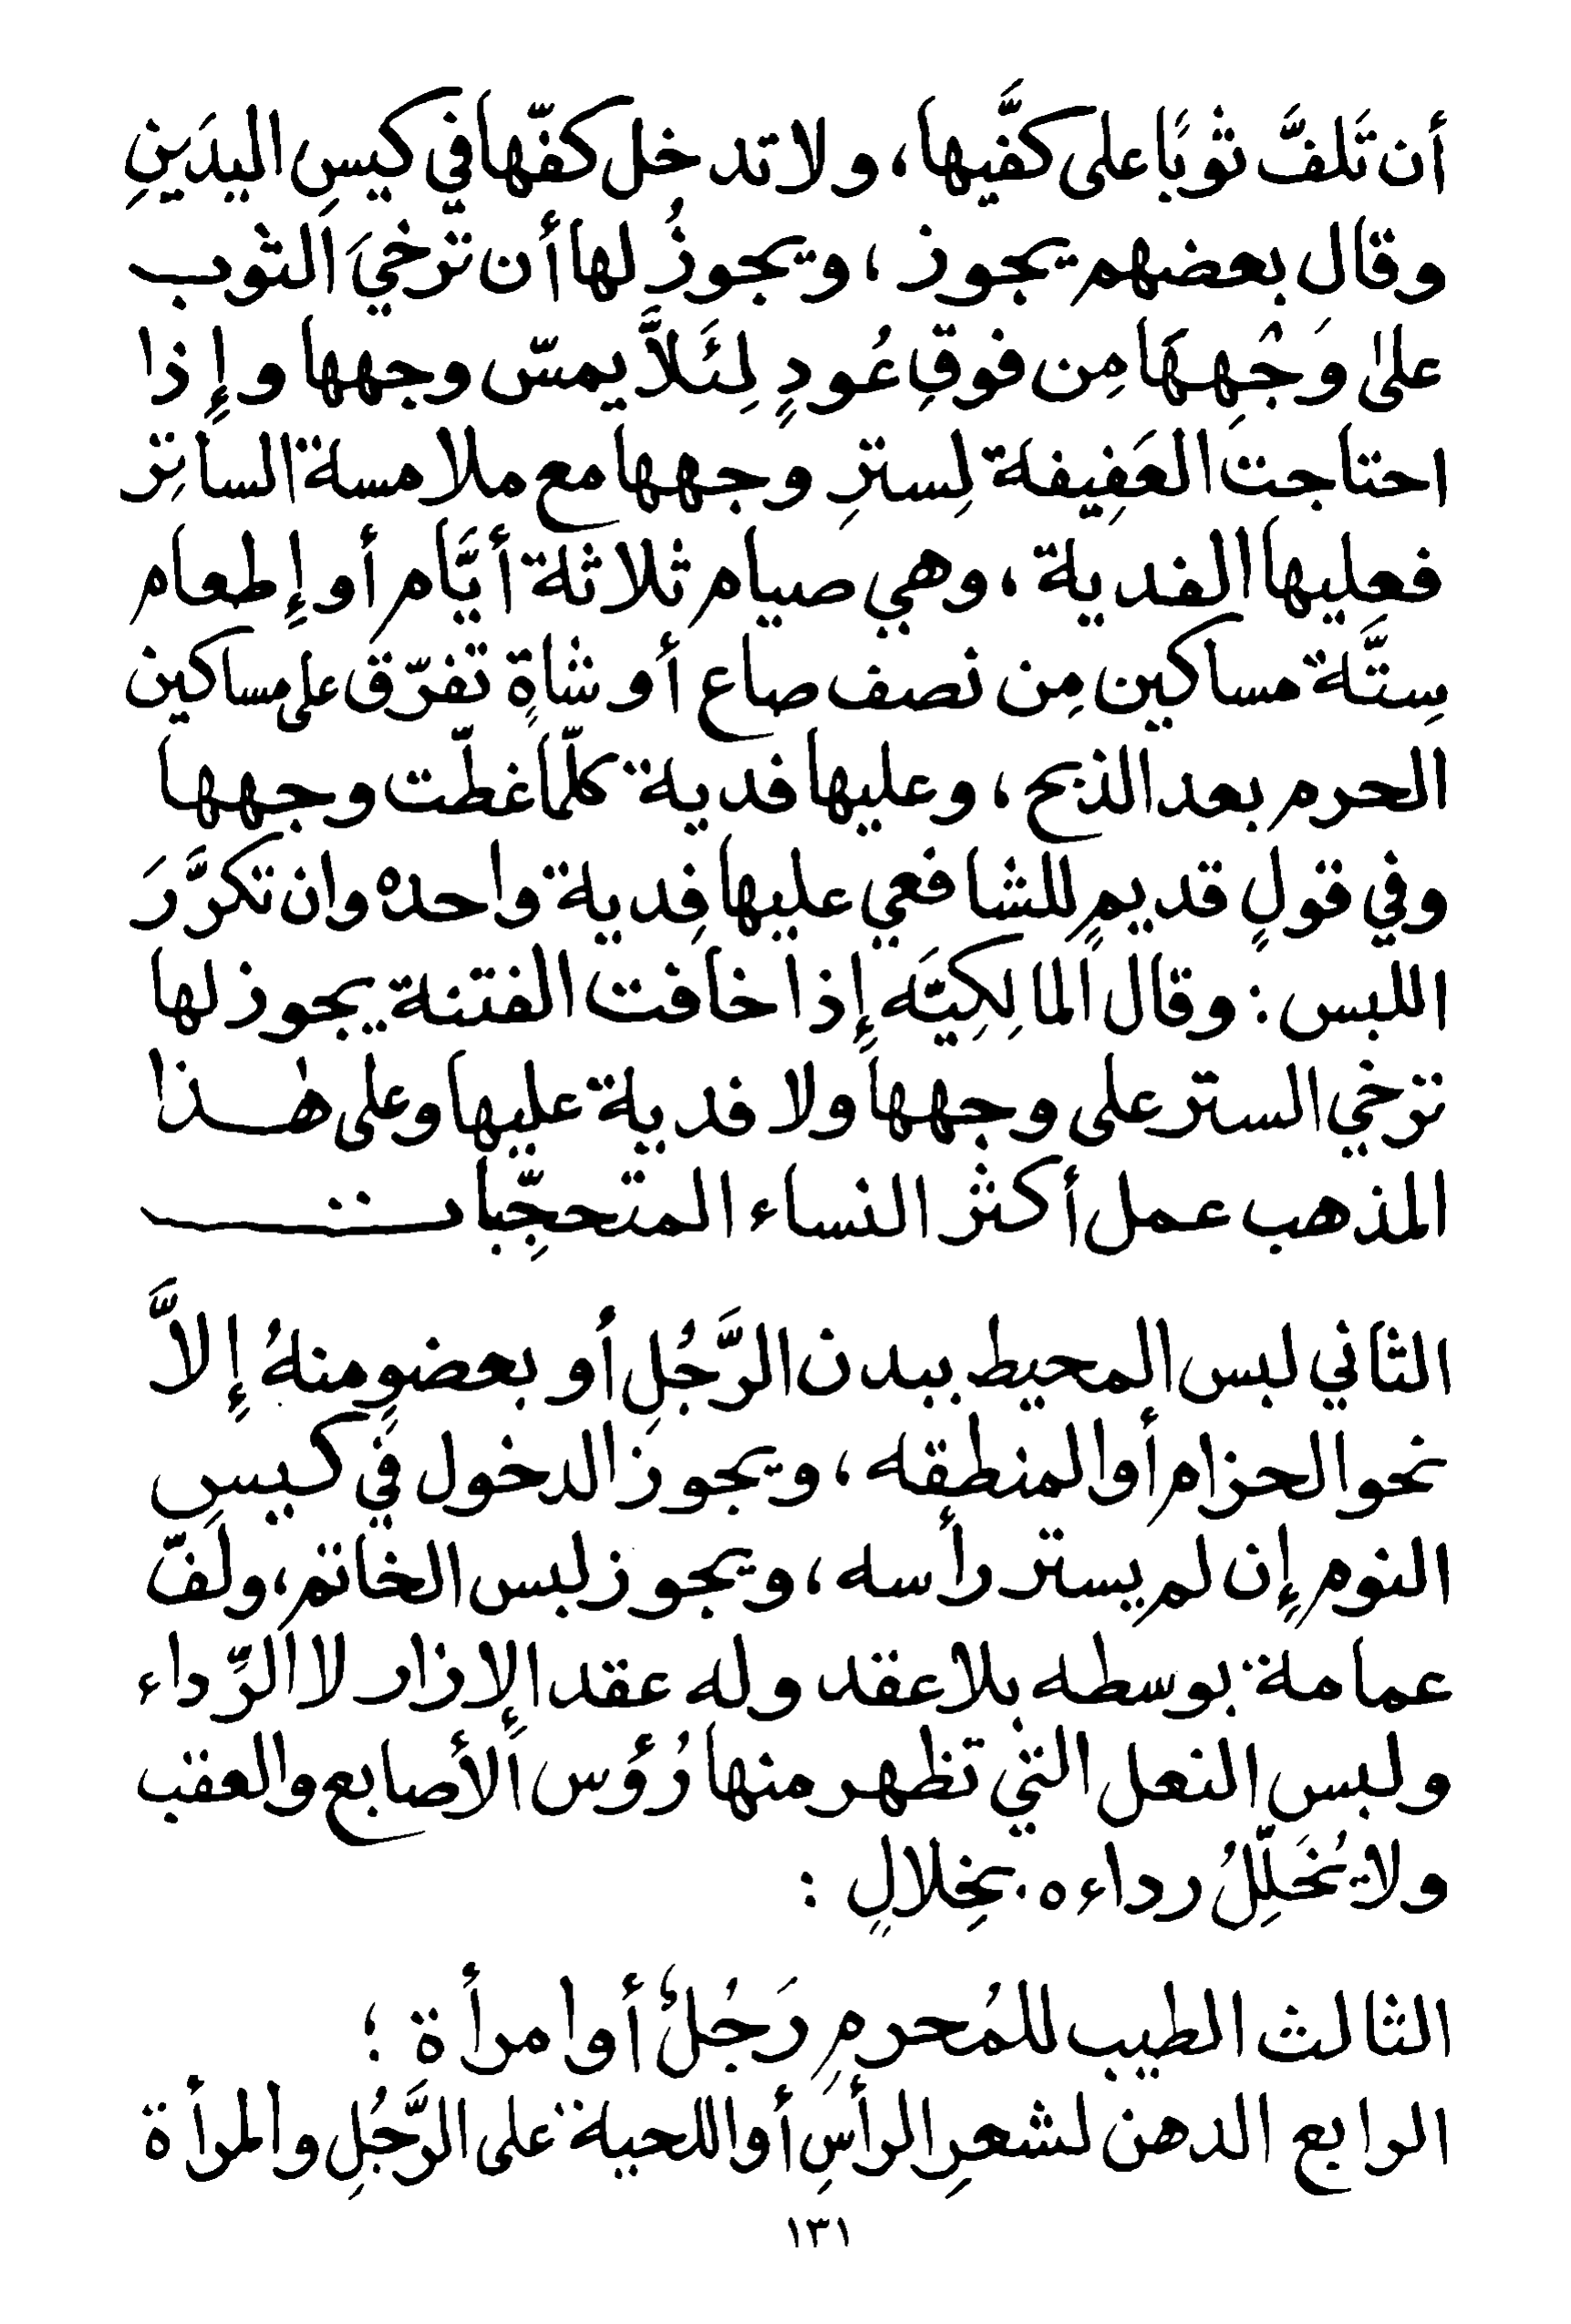 أن تَلفَّ ثوبًا على كفَّيها، ولا تدخل كفّها في كيسِ اليدَينِ
وقال بعضهم يجوز، ويجوزُ لها أن ترخيَ الثوب
على وَجْهِهَا مِن فوقِ عُودٍ لِئَلاَّ يمسّ وجهها وإذا
احتاجت العَفِيفة لِسترِ وجهها مع ملامسة الساتِر
فعليها الفدية، وهي صيام ثلاثة أيَّام أو إطعام
سِتَّة مساكين مِن نصف صاع أو شاةٍ تفرّق على مساكين
الحرم بعد الذبح، وعليها فدية كلّما غطّت وجهها
وفي قولٍ قديمٍ للشافعي عليها فِدية واحده وان تكرَّرَ
اللبس: وقال المالِكِيَّه إذا خافت الفتنة يجوز لها
ترخي الستر على وجهها ولا فدية عليها وعلى هٰذا
المذهب عمل أكثر النساء المتحجِّبات
الثاني لبس المحيط ببدن الرَّجُلِ أو بعضوٍ منهُ إلاَّ
نحو الحزام أو المنطقه، ويجوز الدخول في كيسِ
النوم إن لم يستر رأسه، ويجوز لبس الخاتم، ولفّ
عمامة بوسطه بلا عقد وله عقد الإزار لا الرِّداء
ولبس النعل التي تظهر منها رُؤس الأصابع والعقب
ولا يُخَلِّلُ رداءه بخِلالٍ :
الثالث الطيب للمُحرمِ رَجُلٌ أو امرأة ؛
الرابع الدهن لشعرِ الرأسِ أو اللحية على الرَّجُلِ والمرأة
١٣١